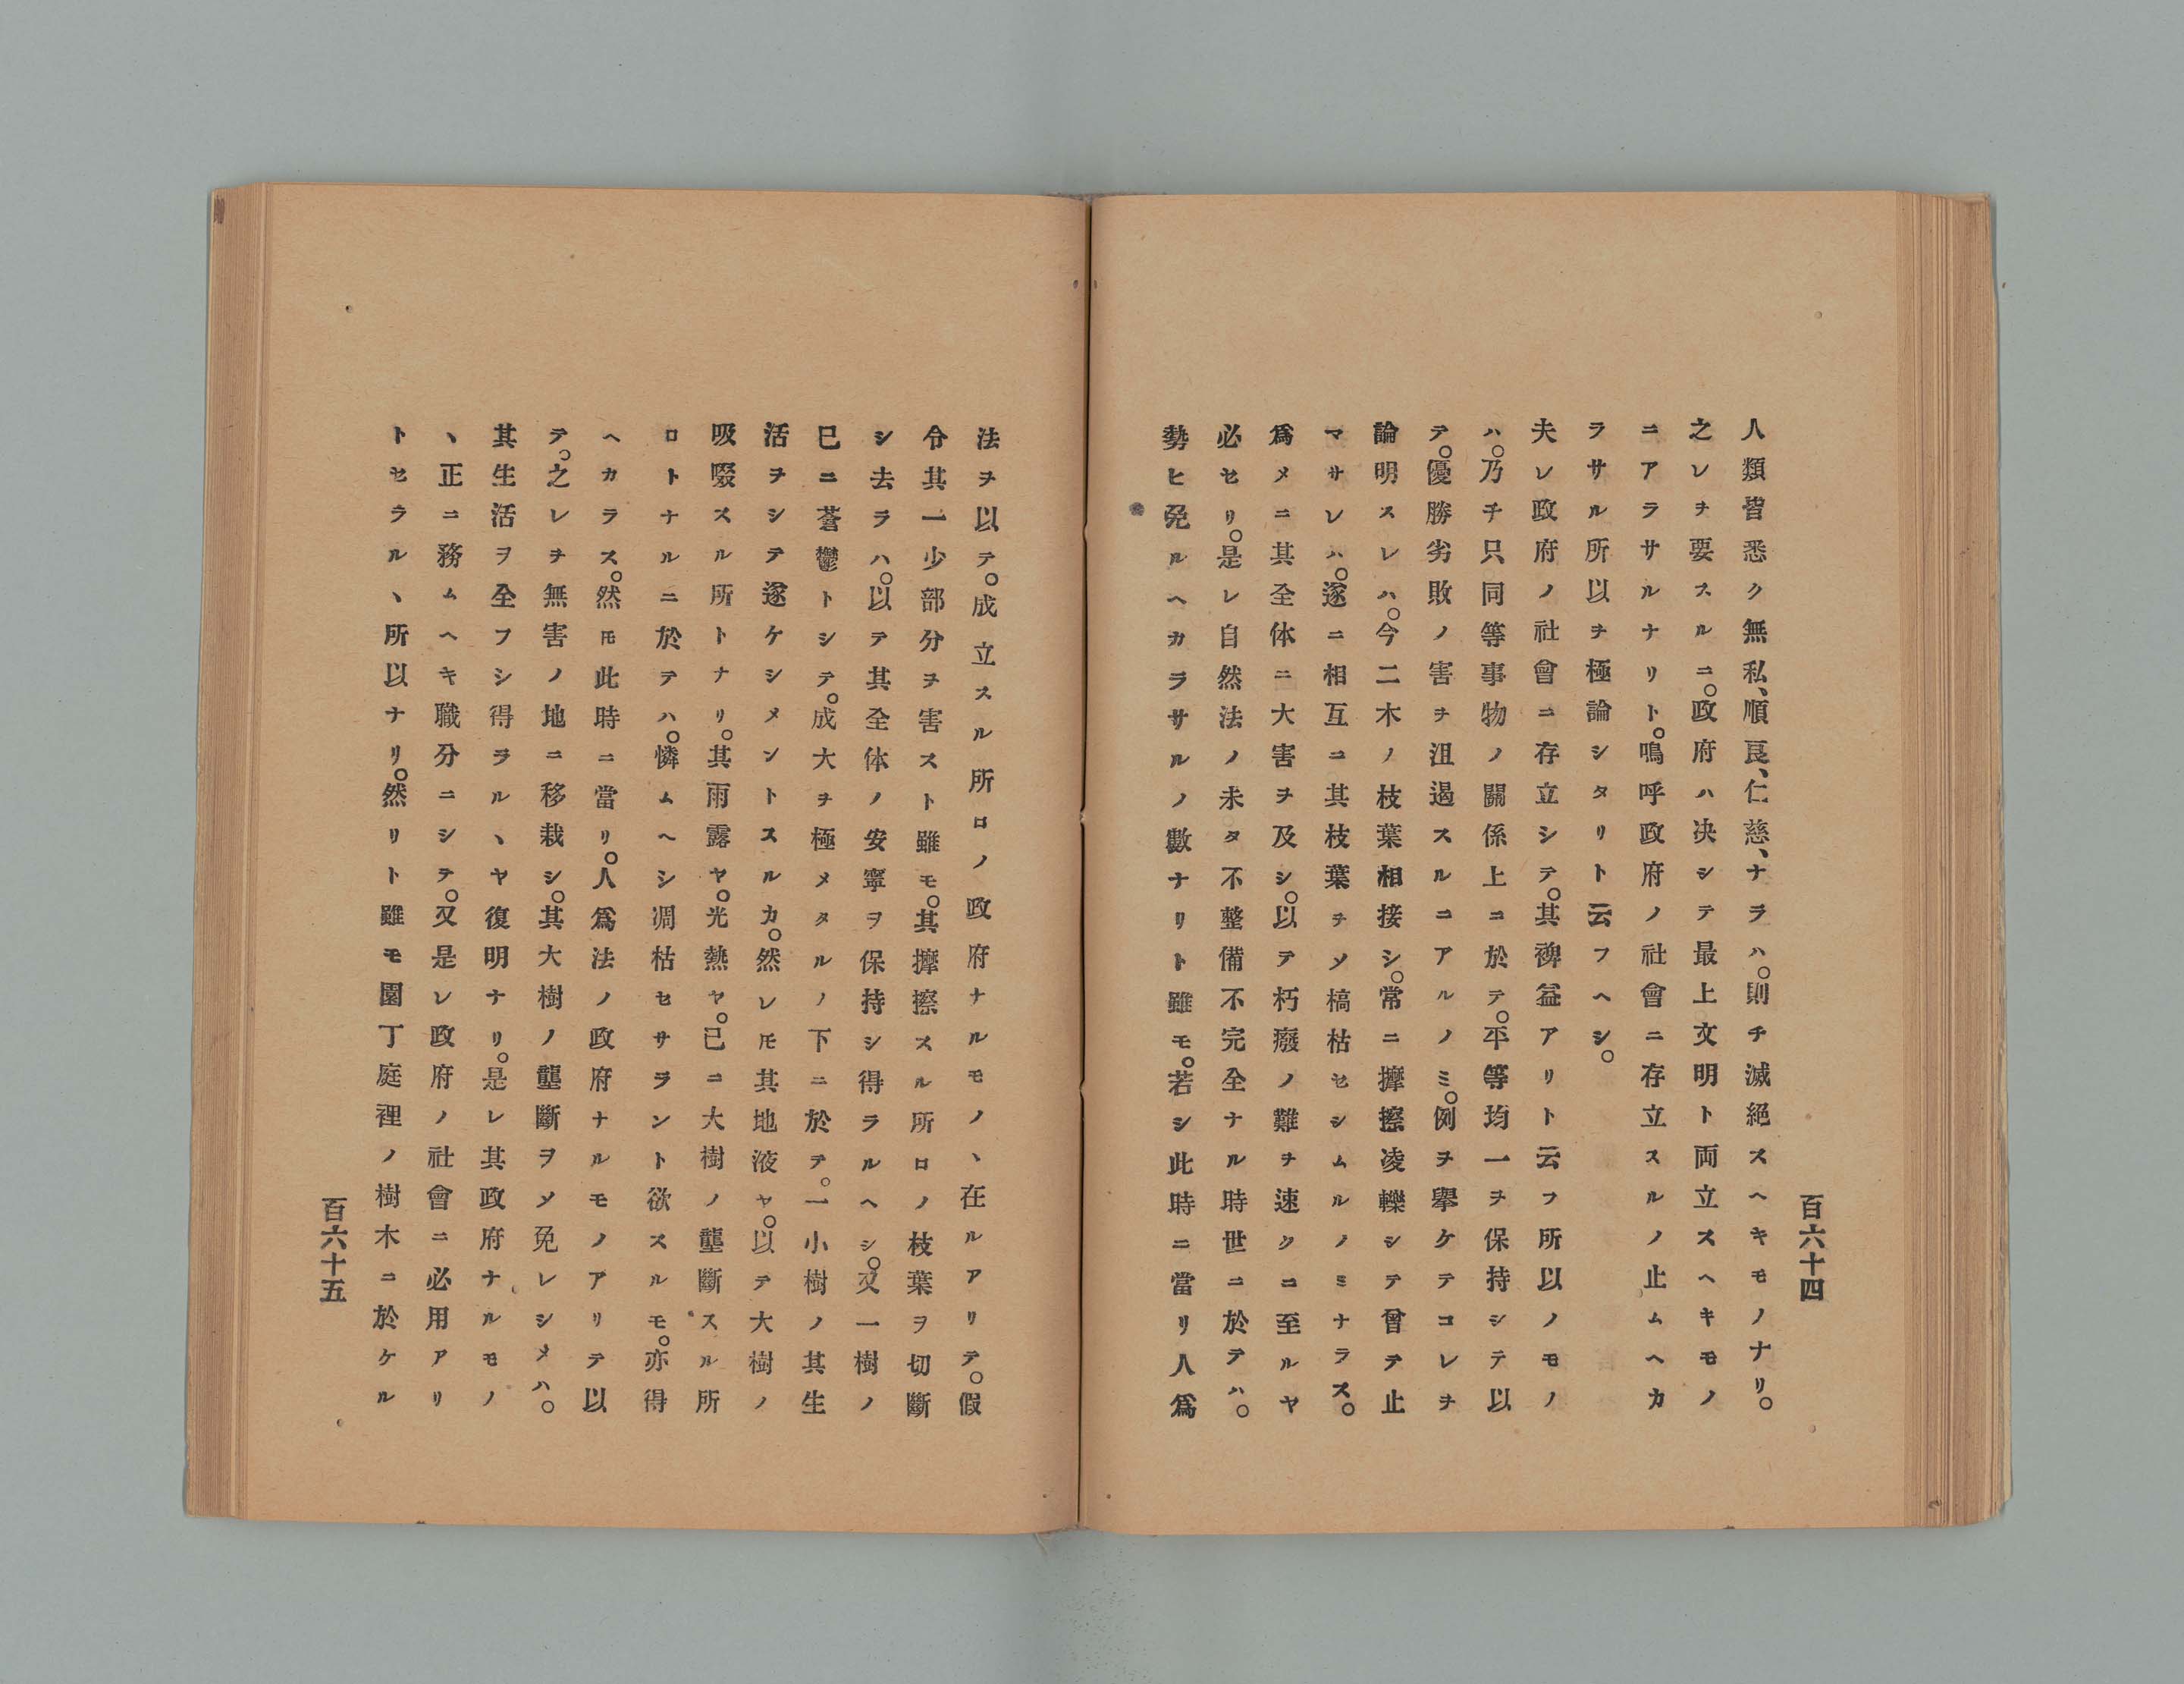 百六十四
人類皆悉ク無私、順良、仁慈、ナラハ。則チ滅絕スヘキモノナリ。
之レヲ要スルニ。政府ハ决シテ最上文明ト両立スヘキモノ
ニアラサルナリト。鳴呼政府ノ社會ニ存立スルノ止ムヘカ
ラサル所以ヲ極論シタリト云フヘシ。
夫レ政府ノ社會ニ存立シテ。其裨益アリト云フ所以ノモノ
ハ。乃チ只同等事物ノ關係上ニ於テ。平等均一ヲ保持シテ以
テ。優勝劣敗ノ害ヲ沮遏スルニアルノミ。例ヲ擧ケテコレヲ
論明スレハ。今二木ノ枝葉相接シ。常ニ摩擦凌轢シテ曾テ止
マサレハ。遂ニ相互ニ其枝葉ヲソ槁枯セシムルノミナラス。
爲メニ其全体ニ大害ヲ及シ。以テ朽癈ノ難ヲ速クニ至ルヤ
必セリ。是レ自然法ノ未タ不整備不完全ナル時世ニ於テハ。
勢ヒ免ルヘカラサルノ數ナリト雖モ。若シ此時ニ當リ人爲
法ヲ以テ。成立スル所ロノ政府ナルモノヽ在ルアリテ。假
令其一少部分ヲ害スト雖モ。其摩擦スル所ロノ枝葉ヲ切斷
シ去ラハ。以テ其全体ノ安寧ヲ保持シ得ラルヘシ。又一樹ノ
已ニ蒼鬱トシテ。成大ヲ極メタルノ下ニ於テ。一小樹ノ其生
活ヲシテ遂ケシメントスルカ。然レモ其地液ヤ。以テ大樹ノ
吸啜スル所トナリ。其雨露ヤ。光熱ヤ。已ニ大樹ノ壟斷スル所
ロトナルニ於テハ。憐ムヘシ凋枯セサラント欲スルモ。亦得
ヘカラス。然モ此時ニ當リ。人爲法ノ政府ナルモノアリテ以
テ。之レヲ無害ノ地ニ移栽シ。其大樹ノ壟斷ヲソ免レシメハ。
其生活ヲ全フシ得ラルヽヤ復明ナリ。是レ其政府ナルモノ
ヽ正ニ務ムヘキ職分ニシテ。又是レ政府ノ社會ニ必用アリ
トセラルヽ所以ナリ。然リト雖モ園丁庭裡ノ樹木ニ於ケル
百六十五